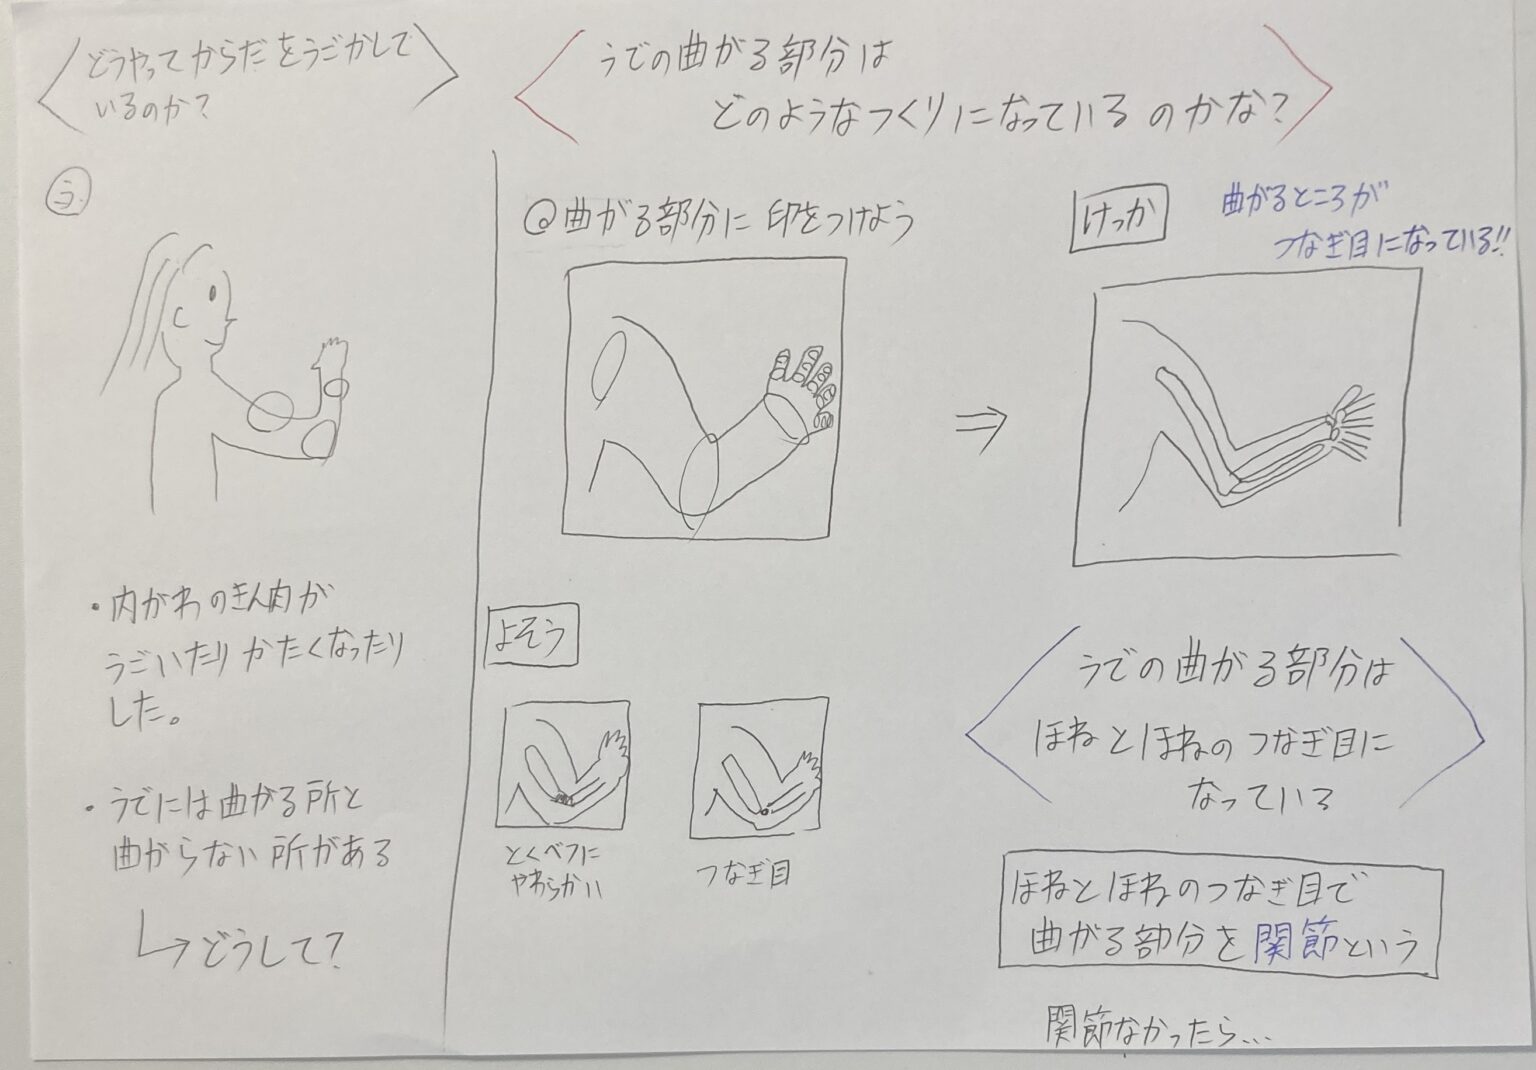 どうやってからだをうごかして
いるのか?
う
・内がわのきん肉が
うごいたりかたくなったり
した。
・うでには曲がる所と
曲がらない所がある
↳どうして?
うでの曲がる部分は
どのようなつくりになっているのかな?
◎曲がる部分に印をつけよう
よそう
とくべつに
やわらかい
つなぎ目
⇒
けっか
曲がるところが
つなぎ目になっている!!
うでの曲がる部分は
ほねとほねのつなぎ目に
なっている
ほねとほねのつなぎ目で
曲がる部分を関節という
関節なかったら…